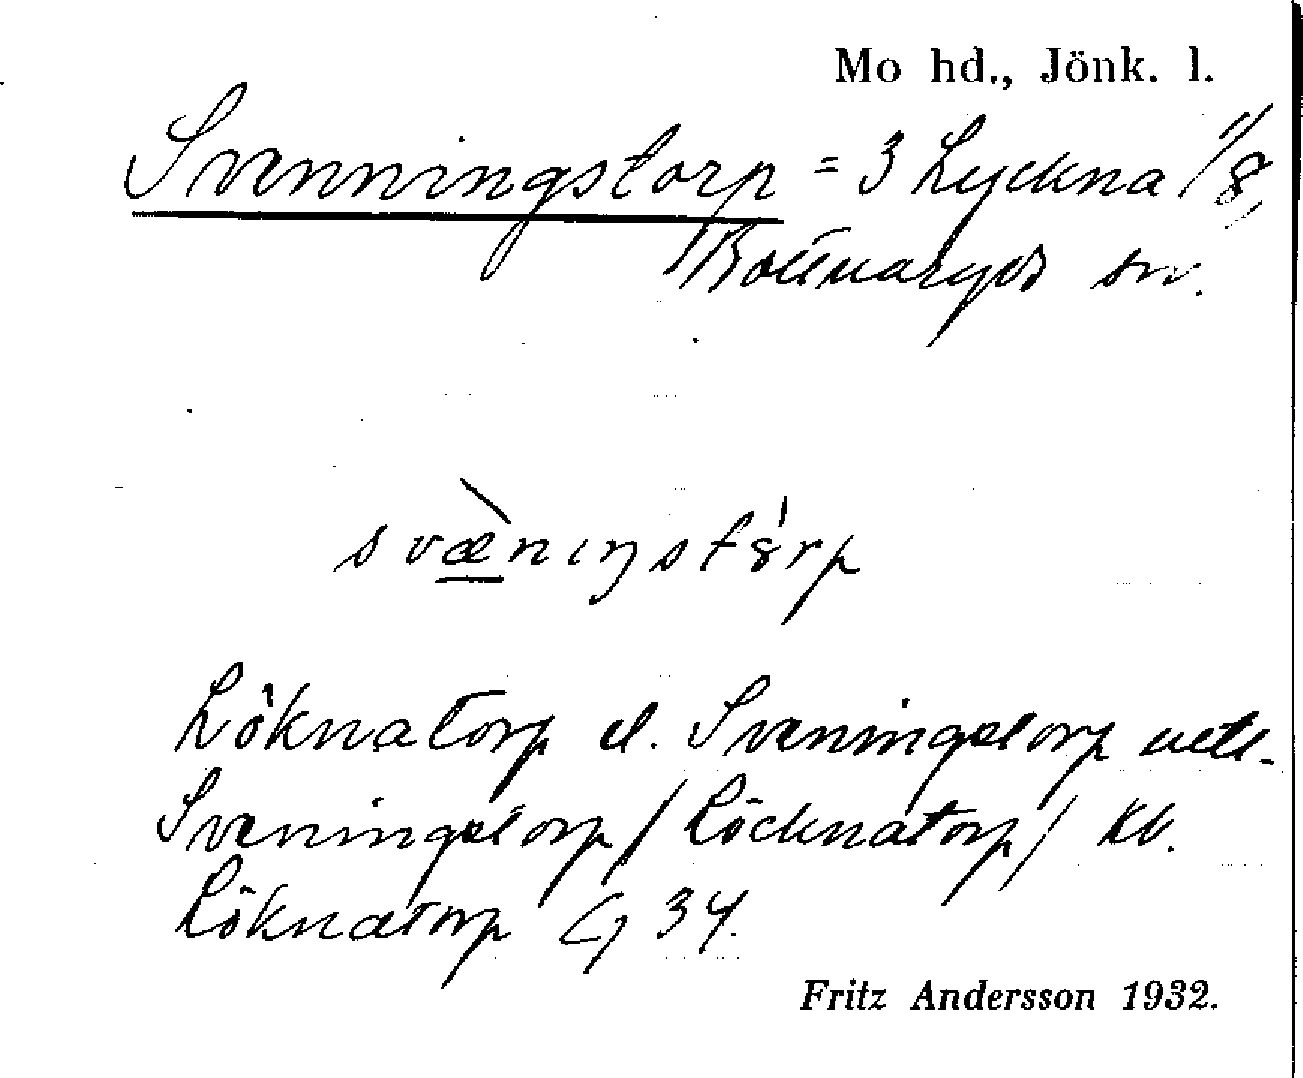 Mo hd., Jönk. l.
Svenningstorp = 3 Lyckna 1/8,
Bottnaryds sn.
svæ̀niŋstȣ́rp
Löknatorp el. Sveningstorp uttl.
Sveningstorp / Löcknatorp / Kb.
Löknatorp G 34.
Fritz Andersson 1932.